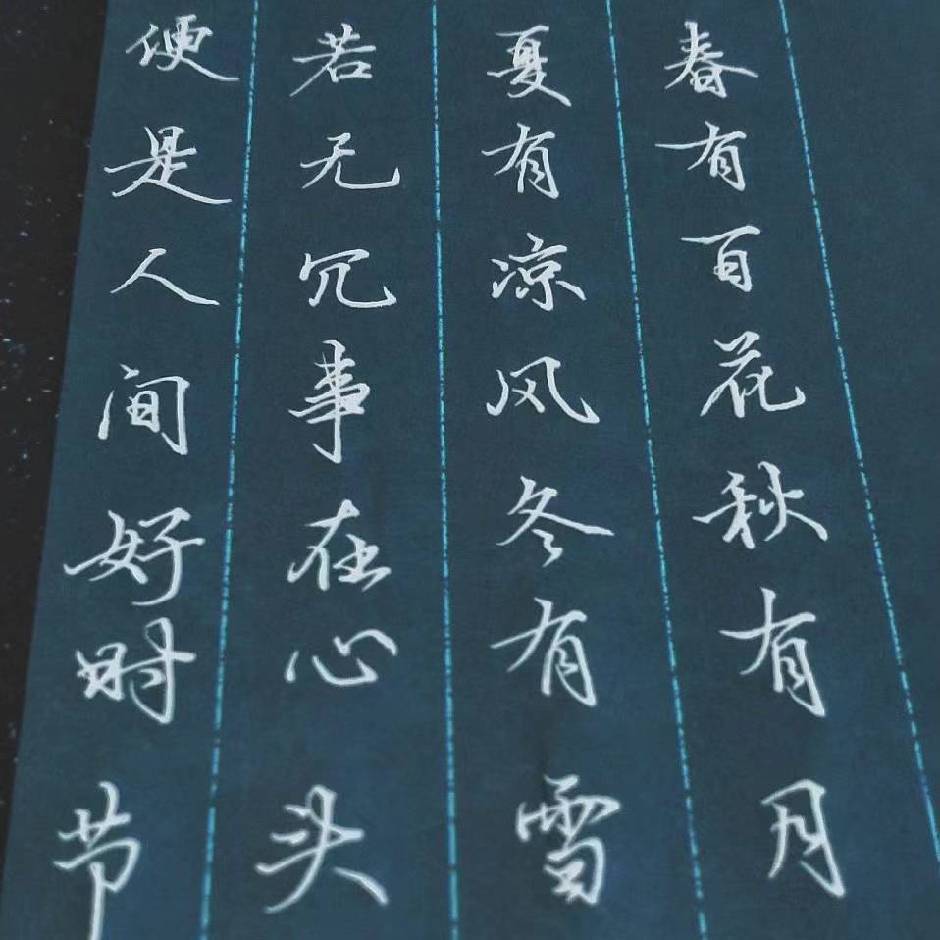 春有百花秋有月
夏有凉风冬有雪
若无冗事在心头
便是人间好时节